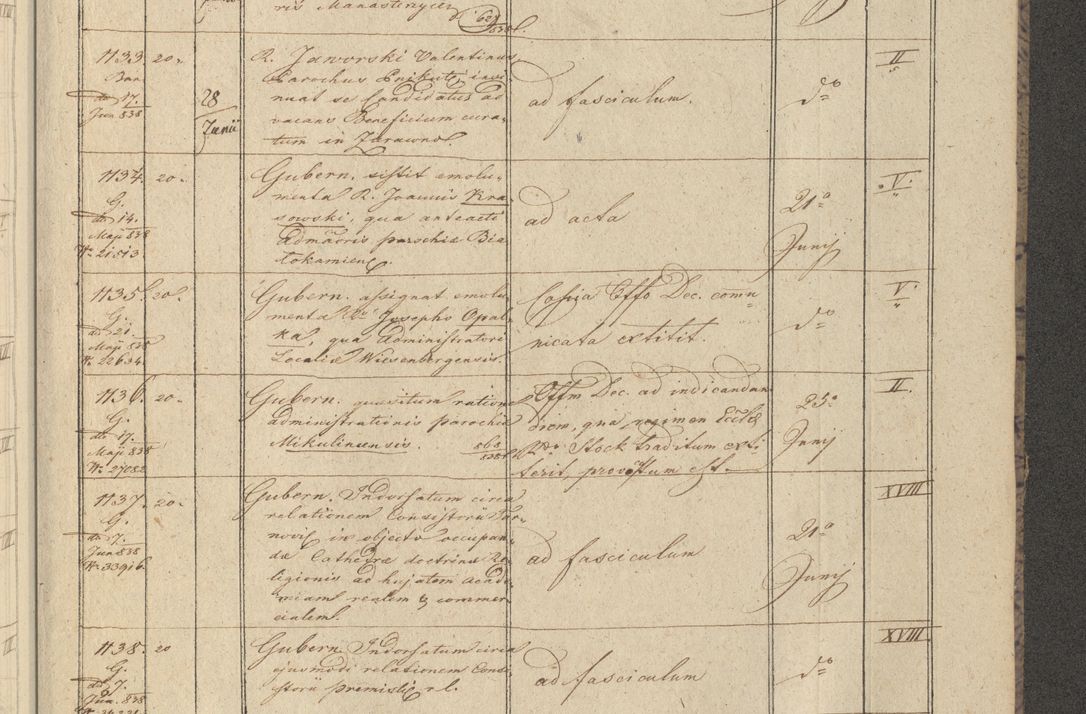 ris Manasterycz 621/838.
1133. 20.
Bar.
do 17.
Jun 838
28
Junii
R. Jaworski Valentinus
Parochus Prikuti insi
nuat se Candidatus ad
vacans Beneficium cura
tum in Zurawno.
ad fasciculum.
do
II
1134. 20.
G.
do 14.
Maji 838
Nr. 21513.
Gubern. sistit emolu
menta R. Joannis Kra
sowski, qua anteacti
Admāoris parochiæ Bia
tokamien.
ad acta
21a
Junij
V.
1135. 20.
G.
do 21.
Maji 838
Nr. 22634.
Gubern. assignat emolu
menta Rdo Josepho Opal
ka, qua Administratori
Localiæ Wiesenbergensis.
Copia Offo Dec. comu
nicata extitit.
do
V.
1136. 20.
G.
do 17.
Maji 838
Nr. 27082
Gubern. quæsitum ratione
administrationis parochiæ
Mikulinensis. 568/838
Offm Dec. ad indicandam
diem, qua regimen Eccle
Rdo Stock traditum exti
terit, provo͠tum est.
25a
Junij
II.
1137. 20.
G.
do 7.
Jun 838
Nr. 33916.
Gubern. Indorsatum circa
relationem Consistorii Tar
novi in objecto occupan
dæ Cathedræ doctrinæ Re
ligionis ad hujatem Acade
miam realem & commer
cialem.
ad fasciculum
21a
Junij
XVIII
1138. 20
G.
do 7.
Jun. 838
Gubern. Indorsatum circa
ejusmodi relationem Consi
storii premisli r. l.
ad fasciculum
do
XVIII.